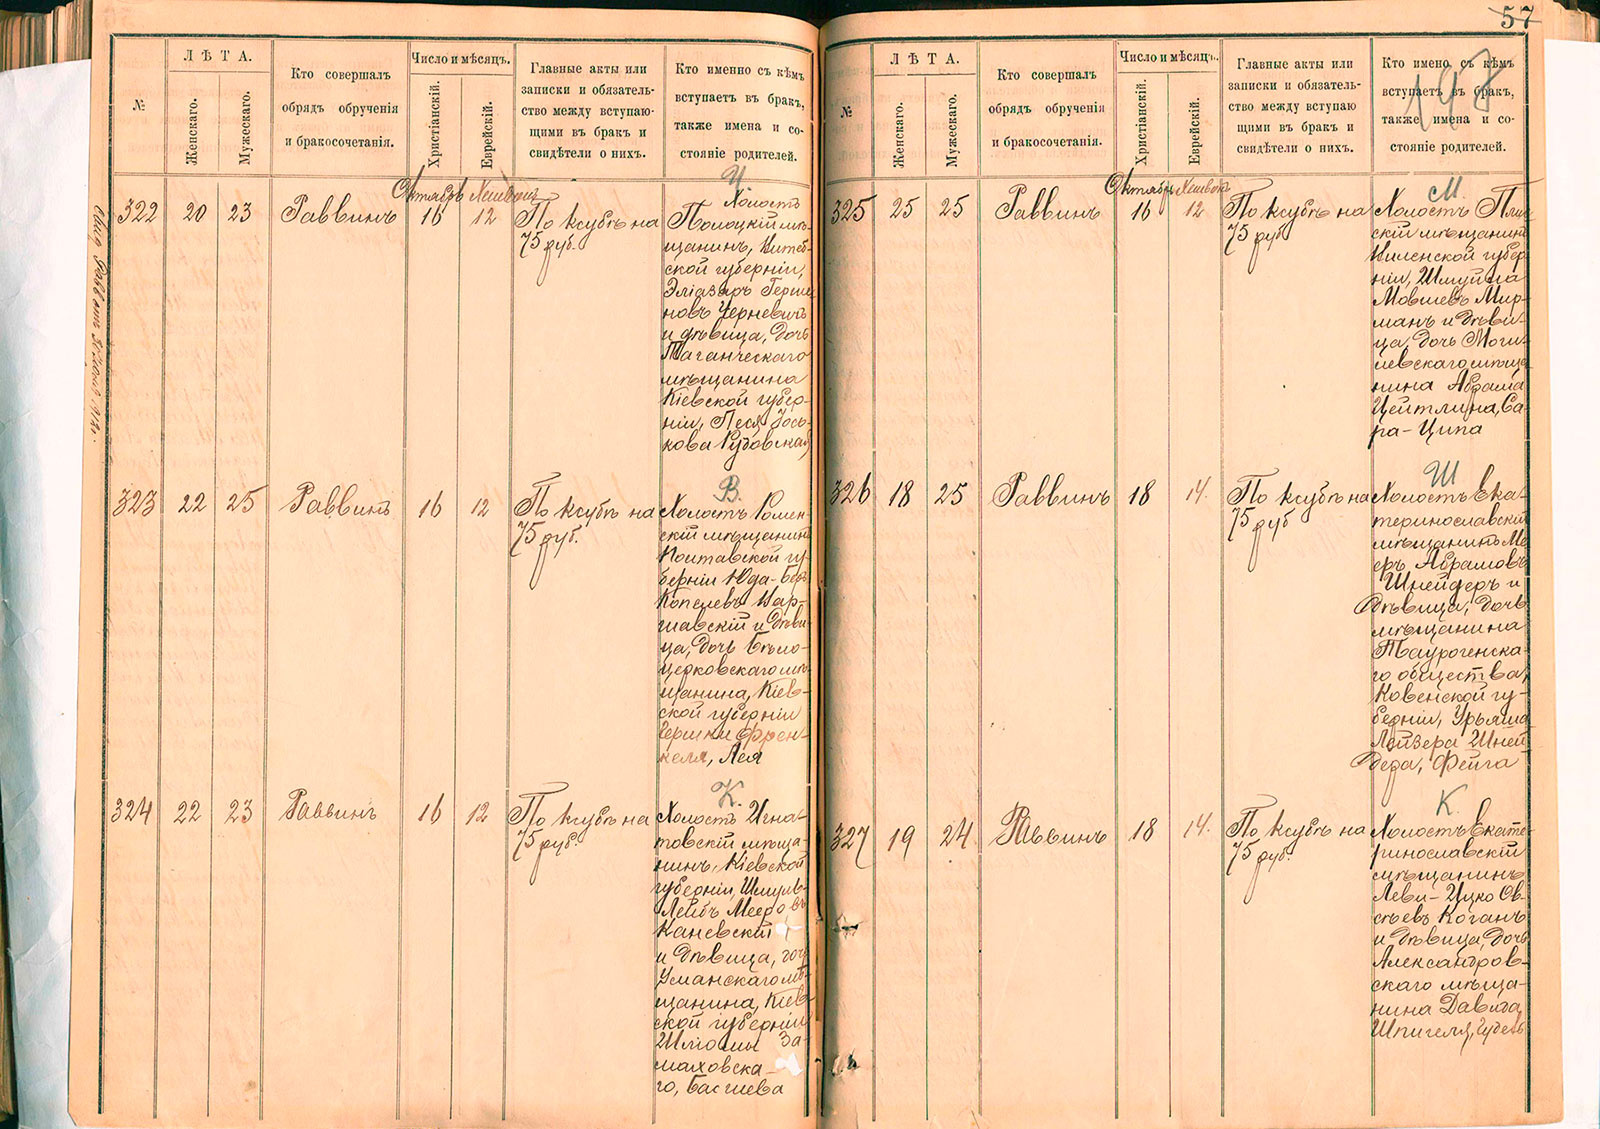 57
№
ЛѢТА.
Женскаго.
Мужескаго.
Кто совершалъ
обрядъ обрученія
и бракосочетанія.
Число и мѣсяцъ.
Христіанскій.
Еврейскій.
Главные акты или
записки и обязатель-
ство между вступаю-
щими въ бракъ и
свидѣтели о нихъ.
Кто именно съ кѣмъ
вступаетъ въ бракъ,
также имена и со-
стояніе родителей.
Октябрь
322 20 23 Раввинъ 16 12 По ксубѣ на
75 руб.
Ч.
Холостъ
Полоцкій мѣ-
щанинъ, Витеб-
ской губерніи,
Эліазаръ Герше-
новъ Черневичъ
и дѣвица, дочь
Таганческаго
мѣщанина
Кіевской губер-
ніи, Песя Іось-
кова Рудовская
323 22 25 Раввинъ 16 12 По ксубѣ на
75 руб.
В.
Холостъ Ромен-
скій мѣщанинъ
Полтавской гу-
берніи Юда-Беръ
Копелевъ Вар-
шавскій и дѣви-
ца, дочь Бѣло-
церковскаго мѣ-
щанина, Кіев-
ской губерніи
Гершки Френ-
келя, Лея
324 22 23 Раввинъ 16 12 По ксубѣ на
75 руб.
К.
Холостъ Игна-
товскій мѣща-
нинъ, Кіевской
губерніи Шмуль-
Лейбъ Мееровъ
Каневскій
и дѣвица, дочь
Уманскаго мѣ-
щанина, Кіев-
ской губерніи
Шлiомы За-
маховска-
го, Басшева
№
ЛѢТА.
Женскаго.
Мужескаго.
Кто совершалъ
обрядъ обрученія
и бракосочетанія.
Число и мѣсяцъ.
Христіанскій.
Еврейскій.
Главные акты или
записки и обязатель-
ство между вступаю
щими въ бракъ и
свидѣтели о нихъ.
Кто имено съ кѣмъ
вступаетъ въ бракъ,
также имена и со-
стояніе родителей.
Октябрь
325 25 25 Раввинъ 16 12 По ксубѣ на
75 руб.
М.
Холостъ
скій мѣщанинъ
Виленской губер
ніи, Шмуйла
Мовшевъ Мир-
манъ и дѣви-
ца, дочь Моги-
левскаго мѣща
нина Абрама
Цейтлина, Са-
ра-Ципа
326 18 25 Раввинъ 18 14. По ксубѣ на
75 руб
Ш
Холостъ Ека-
теринославскій
мѣщанинъ Ме-
еръ Абрамовъ
Шнейдеръ и
дѣвица, дочь
мѣщанина
Таурогенска-
го общества,
Ковенской гу-
берніи, Урьяша
Лейзера Шней
дера, Фейга
327 19 24 Раввинъ 18 14. По ксубѣ на
75 руб.
К.
Холостъ Екате-
ринославскій
мѣщанинъ
Леви-Ицко Ов-
сѣевъ Коганъ
и дѣвица, дочь
Александров-
скаго мѣща-
нина Давида
Шпигеля, Гудель